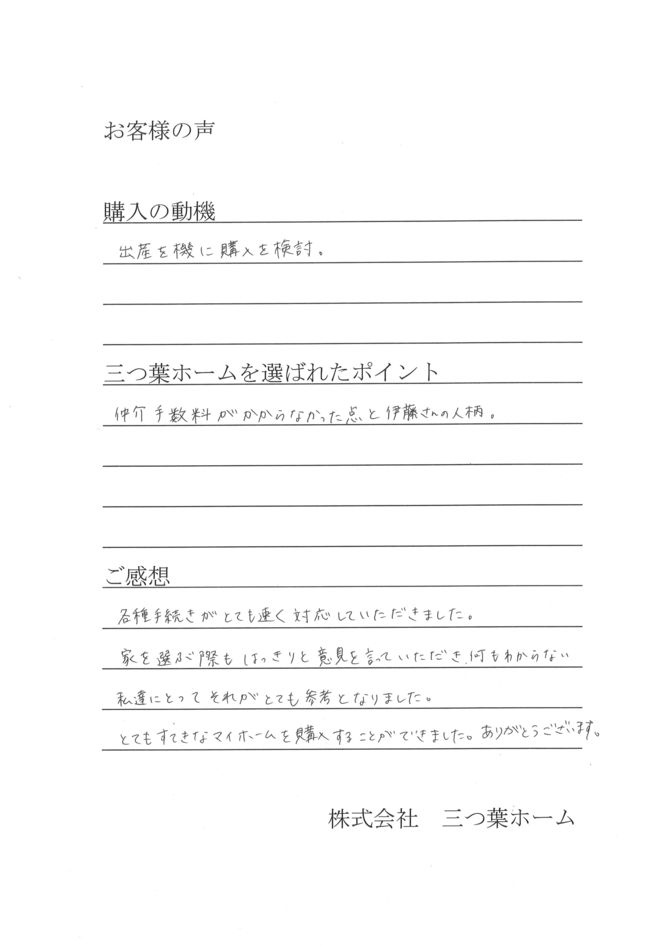 お客様の声
購入の動機
出産を機に購入を検討。
三つ葉ホームを選ばれたポイント
仲介手数料がかからなかった点と伊藤さんの人柄。
ご感想
各種手続きがとても速く対応していただきました。
家を選ぶ際もはっきりと意見を言っていただき、何もわからない
私達にとってそれがとても参考となりました。
とてもすてきなマイホームを購入することができました。ありがとうございます。
株式会社　三つ葉ホーム